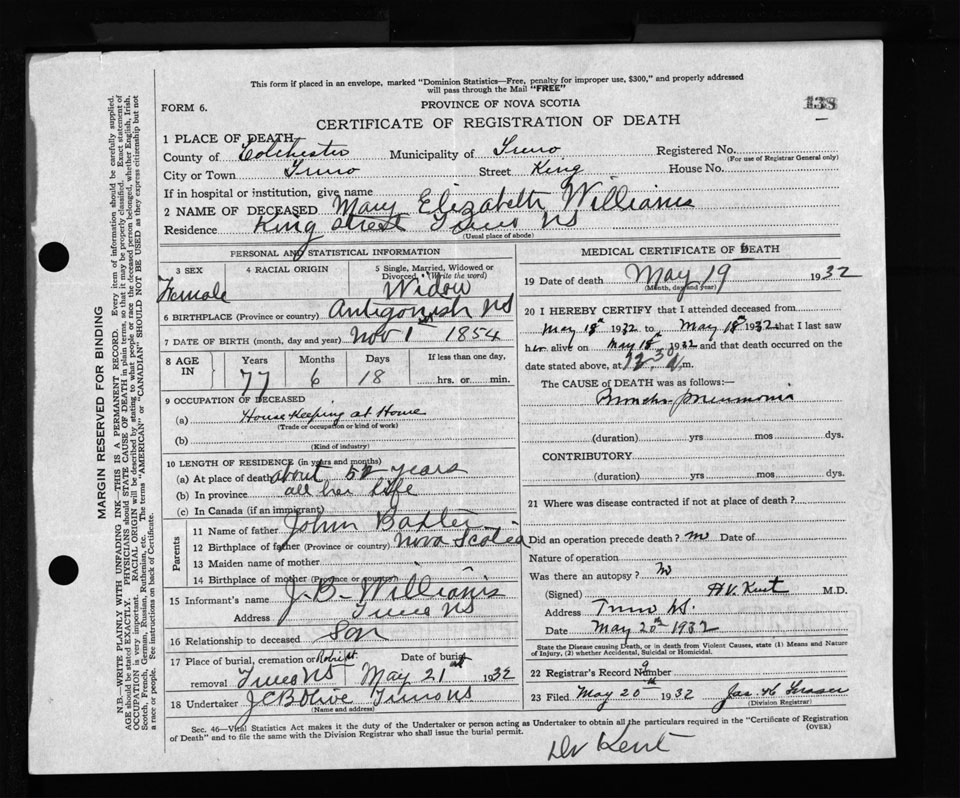 This form if placed in an envelope, marked "Dominion Statistics—Free, penalty for improper use, $300," and properly addressed
will pass through the Mail "FREE"
FORM 6.
PROVINCE OF NOVA SCOTIA
138
CERTIFICATE OF REGISTRATION OF DEATH
1 PLACE OF DEATH
County of Colchester Municipality of Truro Registered No.
(For use of Registrar General only)
City or Town Truro Street King House No.
If in hospital or institution, give name
2 NAME OF DECEASED Mary Elizabeth Williams
Residence King Street Truro NS
(Usual place of abode)
PERSONAL AND STATISTICAL INFORMATION
3 SEX 4 RACIAL ORIGIN 5 Single, Married, Widowed or
Divorced (Write the word)
Female Widow
6 BIRTHPLACE (Province or country) Antigonish NS
7 DATE OF BIRTH (month, day and year) Nov 1st 1854
8 AGE IN Years Months Days If less than one day,
77 6 18 hrs. or min.
9 OCCUPATION OF DECEASED
(a) House Keeping at Home
(Trade or occupation or kind of work)
(b)
(Kind of industry)
10 LENGTH OF RESIDENCE (in years and months)
(a) At place of death about 52 years
(b) In province all her life
(c) In Canada (if an immigrant)
Parents
11 Name of father John Baxter
12 Birthplace of father (Province or country) Nova Scotia
13 Maiden name of mother
14 Birthplace of mother (Province or country)
15 Informant's name J. B. Williams
Address Truro NS
16 Relationship to deceased Son
17 Place of burial, cremation or Date of burial
removal Truro NS May 21st 1932
18 Undertaker J C B Olive Truro NS
(Name and address)
MEDICAL CERTIFICATE OF DEATH
19 Date of death May 19 1932
(Month, day and year)
20 I HEREBY CERTIFY that I attended deceased from
May 18th 1932 to May 18th 1932 that I last saw
her alive on May 18th 1932 and that death occurred on the
date stated above, at 12.30 a.m.
The CAUSE OF DEATH was as follows:—
Broncho-pneumonia
(duration) yrs mos dys.
CONTRIBUTORY
(duration) yrs. mos. dys.
21 Where was disease contracted if not at place of death?
Did an operation precede death? no Date of
Nature of operation
Was there an autopsy? no
(Signed) H.V. Kent M.D.
Address Truro NS.
Date May 20th 1932
State the Disease causing Death, or in death from Violent Causes, state (1) Means and Nature of
Injury, (2) whether Accidental, Suicidal or Homicidal.
22 Registrar's Record Number 9
23 Filed May 20th 1932 Jas. H Fraser
(Division Registrar)
Sec. 46—Vital Statistics Act makes it the duty of the Undertaker or person acting as Undertaker to obtain all the particulars required in the "Certificate of Registration
of Death" and to file the same with the Division Registrar who shall issue the burial permit.
(OVER)
Dr Kent
MARGIN RESERVED FOR BINDING
N.B.—WRITE PLAINLY WITH UNFADING INK—THIS IS A PERMANENT RECORD. Every item of information should be carefully supplied.
AGE should be stated EXACTLY. PHYSICIANS should STATE CAUSE OF DEATH in plain terms, so that it may be properly classified. Exact statement of
OCCUPATION is very important. RACIAL ORIGIN will be described by stating to what people or race the deceased person belonged, whether English, Irish,
Scotch, French, German, Russian, Ruthenian, etc. The terms "AMERICAN" or "CANADIAN" SHOULD NOT BE USED as they express citizenship but not
a race or people. See instructions on back of Certificate.